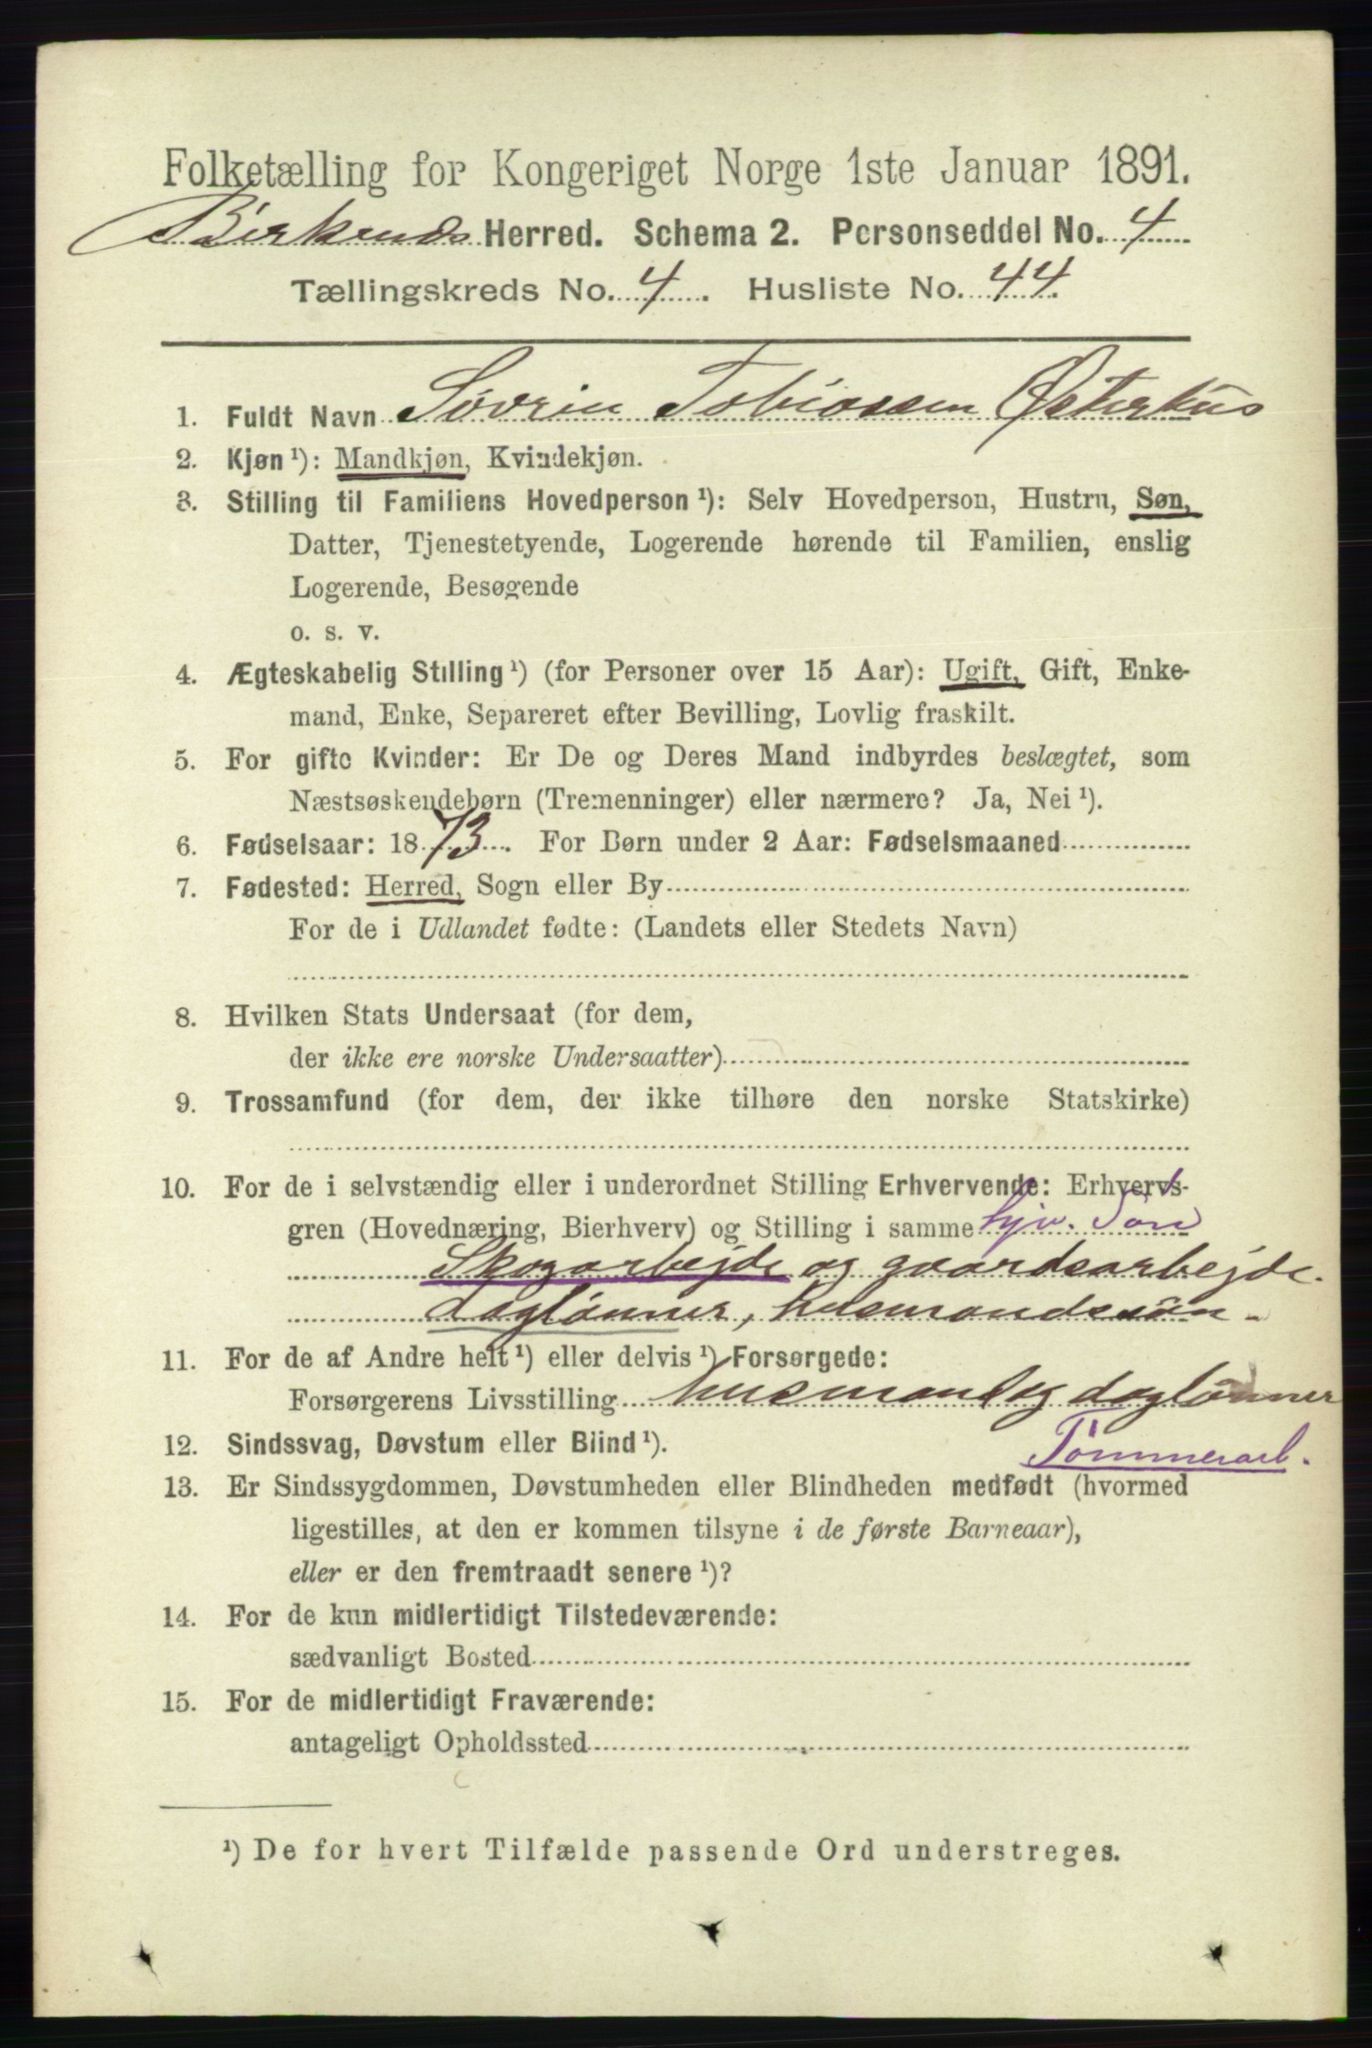 Folketælling for Kongeriget Norge 1ste Januar 1891.
Birkends Herred. Schema 2. Personseddel No. 4
Tællingskreds No. 4. Husliste No. 44.
1. Fuldt Navn Søvrin Tobiassen Østerhus
2. Kjøn ¹): Mandkjøn, Kvindekjøn.
3. Stilling til Familiens Hovedperson ¹): Selv Hovedperson, Hustru, Søn,
Datter, Tjenestetyende, Logerende hørende til Familien, enslig
Logerende, Besøgende
o. s. v.
4. Ægteskabelig Stilling ¹) (for Personer over 15 Aar): Ugift, Gift, Enke-
mand, Enke, Separeret efter Bevilling, Lovlig fraskilt.
5. For gifte Kvinder: Er De og Deres Mand indbyrdes beslægtet, som
Næstsøskendebørn (Tremenninger) eller nærmere? Ja, Nei ¹).
6. Fødselsaar: 1873. For Børn under 2 Aar: Fødselsmaaned
7. Fødested: Herred, Sogn eller By
For de i Udlandet fødte: (Landets eller Stedets Navn)
8. Hvilken Stats Undersaat (for dem,
der ikke ere norske Undersaatter)
9. Trossamfund (for dem, der ikke tilhøre den norske Statskirke)
10. For de i selvstændig eller i underordnet Stilling Erhvervende: Erhvervs-
gren (Hovednæring, Bierhverv) og Stilling i samme hjv. Søn
Skogarbejde og gaardsarbejde.
daglønner, husmandssøn.
11. For de af Andre helt ¹) eller delvis ¹) Forsørgede:
Forsørgerens Livsstilling husmand og daglønner
12. Sindssvag, Døvstum eller Blind ¹). Tømmerarb.
13. Er Sindssygdommen, Døvstumheden eller Blindheden medfødt (hvormed
ligestilles, at den er kommen tilsyne i de første Barneaar),
eller er den fremtraadt senere ¹)?
14. For de kun midlertidigt Tilstedeværende:
sædvanligt Bosted
15. For de midlertidigt Fraværende:
antageligt Opholdssted
¹) De for hvert Tilfælde passende Ord understreges.